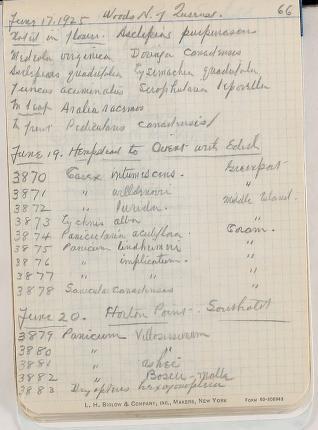 June 17, 1925 Woods N. of 66
Not'd in flower. Asclepias purpurascens
Medeola virginica Donaya canadensis
Asclepias quadrifolia Lysimachia quadrifolia
Juncus acuminatus Scrophularia leporella
In leaf Aralia racemos
In fruit Pedicularis canadensis
June 19. Hempstead to Orient with Edith
3870 Carex intumescens. Greenport
3871 " willdenovii "
3872 " Middle Island
3873 Lychnis alba "
3874 Panicularia acutiflora. Coram.
3875 Panicum lindheimeri "
3876 " implicatum. "
3877 " " "
3878 Sanicula canadensis "
June 20. Horton Point - Southold
3879 Panicum villosissimum
3880 " "
3881 " ashei
3882 " Boscii-molle
3883 Dryopteris hexagonoptera
L. H. BIGLOW & COMPANY, INC., MAKERS, NEW YORK